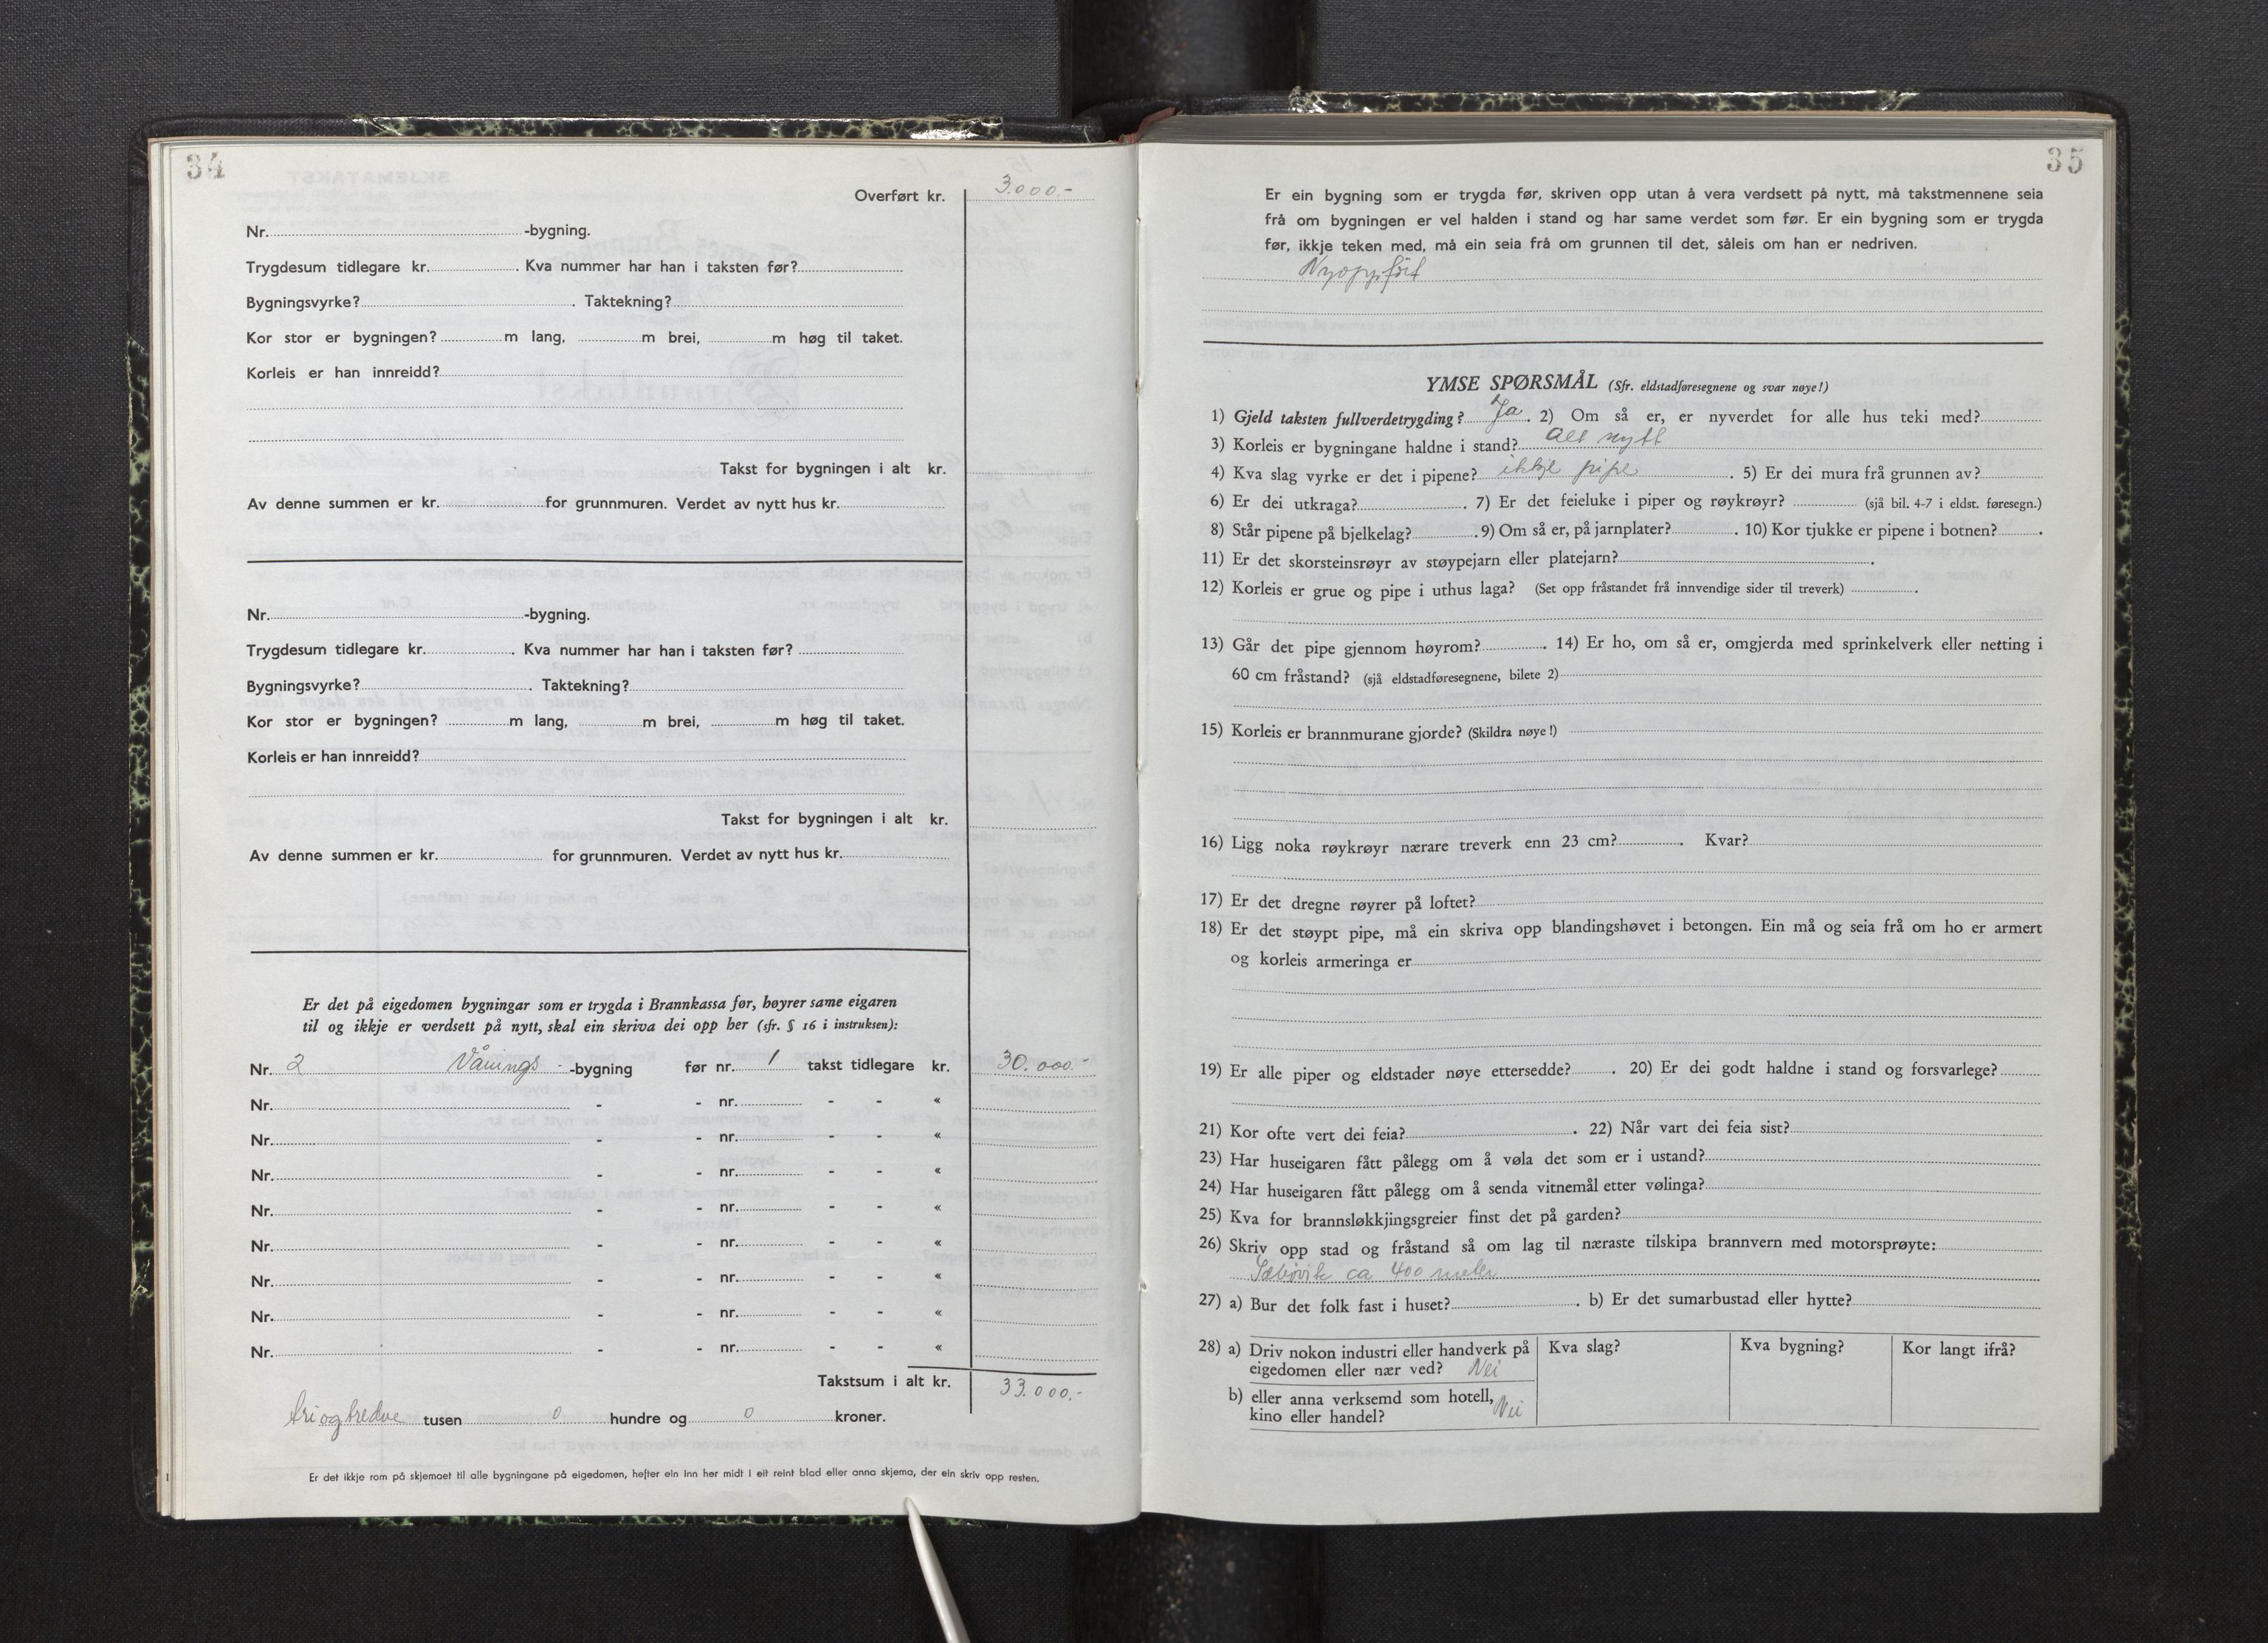 34
Overført kr. 3.000.-
Nr. -bygning.
Trygdesum tidlegare kr. . Kva nummer har han i taksten før?
Bygningsvyrke? . Taktekning?
Kor stor er bygningen? m lang, m brei, m høg til taket.
Korleis er han innreidd?
Takst for bygningen i alt kr.
Av denne summen er kr. for grunnmuren. Verdet av nytt hus kr.
Nr. -bygning.
Trygdesum tidlegare kr. . Kva nummer har han i taksten før?
Bygningsvyrke? . Taktekning?
Kor stor er bygningen? m lang, m brei, m høg til taket.
Korleis er han innreidd?
Takst for bygningen i alt kr.
Av denne summen er kr. for grunnmuren. Verdet av nytt hus kr.
Er det på eigedomen bygningar som er trygda i Brannkassa før, høyrer same eigaren
til og ikkje er verdsett på nytt, skal ein skriva dei opp her (sfr. § 16 i instruksen):
Nr. 2 Vånings -bygning før nr. 1 takst tidlegare kr. 30.000.-
Nr. - - nr. - - «
Nr. - - nr. - - «
Nr. - - nr. - - «
Nr. - - nr. - - «
Nr. - - nr. - - «
Nr. - - nr. - - «
Nr. - - nr. - - «
Nr. - - nr. - - «
Takstsum i alt kr. 33.000.-
triogtredve tusen 0 hundre og 0 kroner.
Er det ikkje rom på skjemaet til alle bygningane på eigedomen, hefter ein inn her midt i eit reint blad eller anna skjema, der ein skriv opp resten.
35
Er ein bygning som er trygda før, skriven opp utan å vera verdsett på nytt, må takstmennene seia
frå om bygningen er vel halden i stand og har same verdet som før. Er ein bygning som er trygda
før, ikkje teken med, må ein seia frå om grunnen til det, såleis om han er nedriven.
Nyoppført
YMSE SPØRSMÅL (Sfr. eldstadføresegnene og svar nøye!)
1) Gjeld taksten fullverdetrygding? Ja . 2) Om så er, er nyverdet for alle hus teki med?
3) Korleis er bygningane haldne i stand? Alt nytt
4) Kva slag vyrke er det i pipene? ikkje pipe . 5) Er dei mura frå grunnen av?
6) Er dei utkraga? . 7) Er det feieluke i piper og røykrøyr? (sjå bil. 4-7 i eldst. føresegn.)
8) Står pipene på bjelkelag? . 9) Om så er, på jarnplater? . 10) Kor tjukke er pipene i botnen? .
11) Er det skorsteinsrøyr av støypejarn eller platejarn? .
12) Korleis er grue og pipe i uthus laga? (Set opp fråstandet frå innvendige sider til treverk) .
13) Går det pipe gjennom høyrom? . 14) Er ho, om så er, omgjerda med sprinkelverk eller netting i
60 cm fråstand? (sjå eldstadføresegnene, bilete 2)
15) Korleis er brannmurane gjorde? (Skildra nøye!)
16) Ligg noka røykrøyr nærare treverk enn 23 cm? . Kvar?
17) Er det dregne røyrer på loftet?
18) Er det støypt pipe, må ein skriva opp blandingshøvet i betongen. Ein må og seia frå om ho er armert
og korleis armeringa er
19) Er alle piper og eldstader nøye ettersedde? . 20) Er dei godt haldne i stand og forsvarlege?
21) Kor ofte vert dei feia? . 22) Når vart dei feia sist?
23) Har huseigaren fått pålegg om å vøla det som er i ustand?
24) Har huseigaren fått pålegg om å senda vitnemål etter vølinga?
25) Kva for brannsløkkjingsgreier finst det på garden?
26) Skriv opp stad og fråstand så om lag til næraste tilskipa brannvern med motorsprøyte:
Sæbøvik ca 400 meter
27) a) Bur det folk fast i huset? . b) Er det sumarbustad eller hytte?
28) a) Driv nokon industri eller handverk på Kva slag? Kva bygning? Kor langt ifrå?
eigedomen eller nær ved? Nei
b) eller anna verksemd som hotell,
kino eller handel? Nei